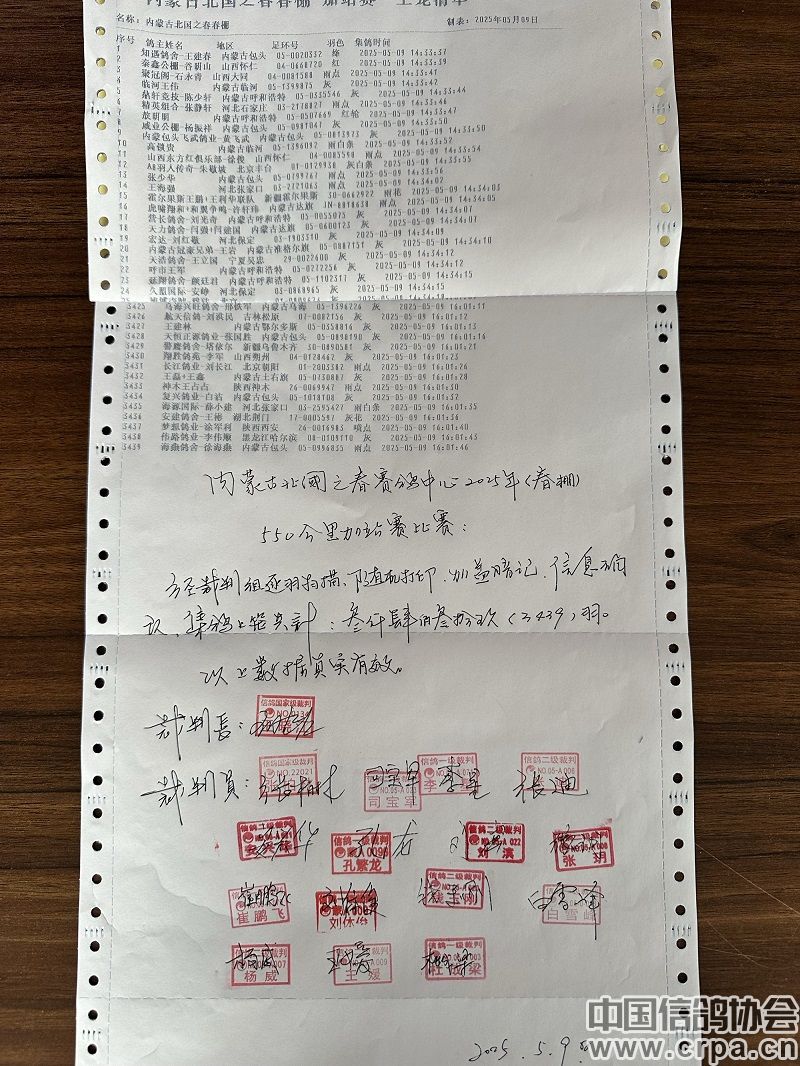 内蒙古北国之春春棚 加站赛 上笼清单
名称: 内蒙古北国之春春棚 制表: 2025年05月09日
序号 鸽主姓名 地区 足环号 羽色 集鸽时间
1 知遇鸽舍-王建春 内蒙古包头 05-0020332 绛 2025-05-09 14:33:37
2 秦鑫公棚-谷朝山 山西怀仁 04-0668720 红 2025-05-09 14:33:39
3 聚冠阁-石永青 山西大同 04-0081588 雨点 2025-05-09 14:33:41
4 临河王伟 内蒙古临河 05-1399875 灰 2025-05-09 14:33:42
5 鼎轩竞技-陈少轩 内蒙古呼和浩特 05-0335546 灰 2025-05-09 14:33:44
6 精英组合-张静轩 河北石家庄 03-2178827 雨点 2025-05-09 14:33:46
7 敖明明 内蒙古呼和浩特 05-0507669 红轮 2025-05-09 14:33:47
8 咸业公棚-杨振祥 内蒙古包头 05-0981047 灰 2025-05-09 14:33:50
9 内蒙古包头飞武鸽业-黄飞武 内蒙古包头 05-0813973 灰 2025-05-09 14:33:50
10 高锁贵 内蒙古临河 05-1396092 雨白条 2025-05-09 14:33:52
11 山西东方红俱乐部-徐俊 山西怀仁 04-0085598 雨点 2025-05-09 14:33:54
12 AB羽人传奇-朱敬城 北京丰台 01-0129938 灰白条 2025-05-09 14:33:55
13 张少华 内蒙古包头 05-0799767 雨点 2025-05-09 14:33:56
14 王海强 河北张家口 03-2721063 雨点 2025-05-09 14:34:02
15 霍尔果斯王鹏+王利华联队 新疆霍尔果斯 30-0662922 雨花 2025-05-09 14:34:03
16 虎啸翔和+和翼争鸣-许轩玮 内蒙古达旗 JN-8818638 雨点 2025-05-09 14:34:05
17 营长鸽舍-刘光奇 内蒙古呼和浩特 05-0055075 灰 2025-05-09 14:34:07
18 天力鸽舍-闫强+闫建国 内蒙古达旗 05-0600123 灰 2025-05-09 14:34:07
19 宏达-刘红敬 河北保定 03-1903310 灰 2025-05-09 14:34:09
20 内蒙古冠家兄弟-王岩 内蒙古准格尔旗 05-0887151 灰 2025-05-09 14:34:10
21 天浩鸽舍-王立国 宁夏吴忠 29-0022600 灰 2025-05-09 14:34:12
22 呼市王军 内蒙古呼和浩特 05-0272256 灰 2025-05-09 14:34:12
23 廷翔鸽舍-颜廷君 内蒙古呼和浩特 05-1102317 灰 2025-05-09 14:34:15
24 久盟国际-安峥 河北保定 03-0868965 灰 2025-05-09 14:34:15
3425 乌海兴旺鸽舍-邢铁军 内蒙古乌海 05-1396226 灰 2025-05-09 16:01:11
3426 航天信鸽-刘洪民 吉林松原 07-0082156 灰 2025-05-09 16:01:12
3427 王建林 内蒙古鄂尔多斯 05-0358816 灰 2025-05-09 16:01:13
3428 天恒正源鸽业-张国胜 内蒙古包头 05-0890190 灰 2025-05-09 16:01:16
3429 鲁鹰鸽舍-塔依尔 新疆乌鲁木齐 30-0890581 灰 2025-05-09 16:01:21
3430 翔胜鸽苑-李军 山西朔州 04-0128467 灰 2025-05-09 16:01:23
3431 长江鸽业-刘长江 北京朝阳 01-2003382 雨点 2025-05-09 16:01:26
3432 王磊+王鑫 内蒙古土右旗 05-0730887 灰 2025-05-09 16:01:28
3433 神木王占占 陕西神木 26-0069947 雨点 2025-05-09 16:01:30
3434 复兴鸽业-白沾 内蒙古包头 05-1018708 灰 2025-05-09 16:01:32
3435 海源国际-薛小建 河北张家口 03-2595427 雨白条 2025-05-09 16:01:33
3436 安建鸽舍-王彬 湖北荆门 17-0005597 灰花 2025-05-09 16:01:36
3437 梦想鸽业-涂军利 陕西西安 26-0016983 喷点 2025-05-09 16:01:40
3438 伟路鸽业-李伟顺 黑龙江哈尔滨 08-0109110 灰 2025-05-09 16:01:43
3439 海淼鸽舍-徐海淼 内蒙古包头 05-0996835 雨点 2025-05-09 16:01:46
内蒙古北国之春赛鸽中心2025年(春棚)
550公里加站赛比赛:
经裁判组逐羽扫描、随机打印、加盖暗记、信息确
认,集鸽上笼共计:叁仟肆佰叁拾玖(3439)羽。
以上数据真实有效。
裁判长:
信鸽国家级裁判
裁判员:
信鸽国家级裁判 NO.22021
司宝军
信鸽一级裁判
信鸽二级裁判 NO.05-A 006
张迪
信鸽二级裁判
信鸽一级裁判 孔繁龙
信鸽二级裁判 刘滨
张玥
崔鹏飞
信鸽二级裁判
白雪峰
杨威
王媛
信鸽一级裁判
2025.5.9
中国信鸽协会
www.crpa.cn